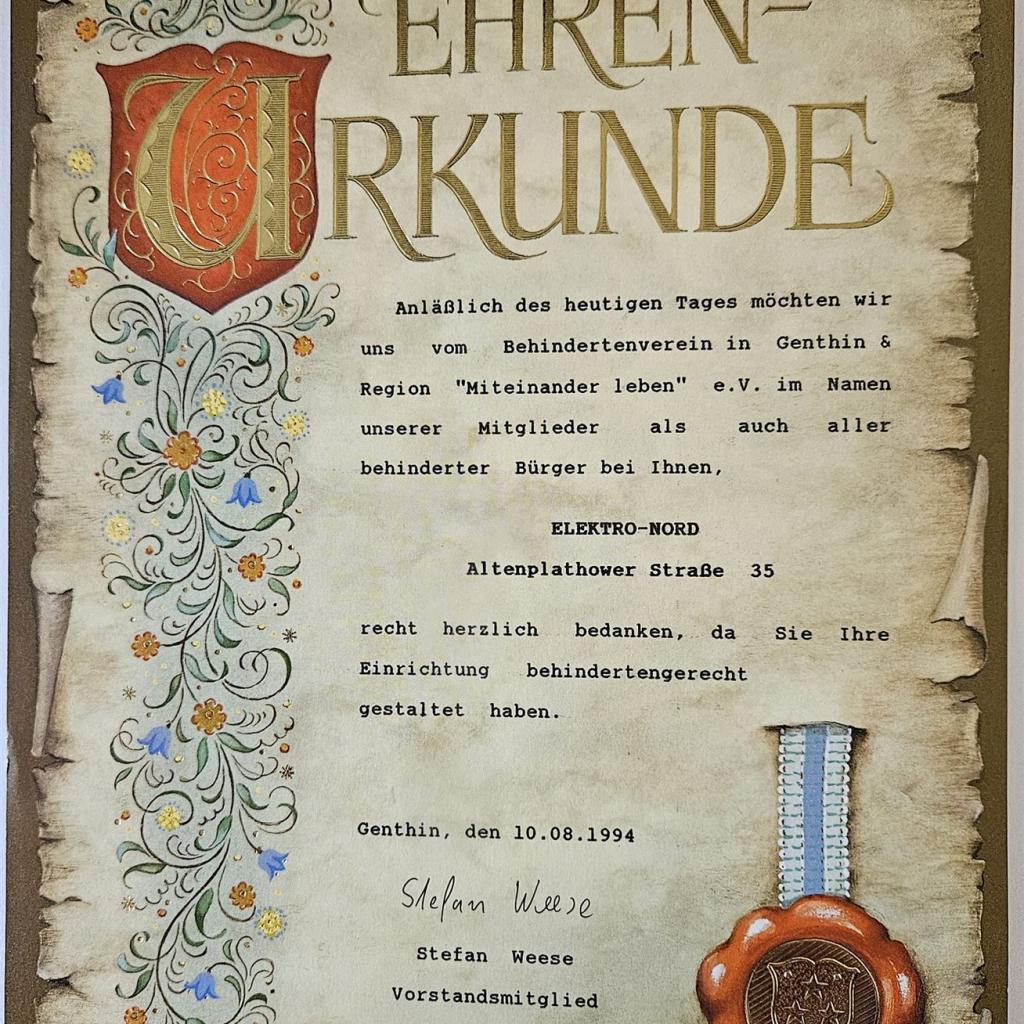 EHREN-
URKUNDE
Anläßlich des heutigen Tages möchten wir
uns vom Behindertenverein in Genthin &
Region "Miteinander leben" e.V. im Namen
unserer Mitglieder als auch aller
behinderter Bürger bei Ihnen,
ELEKTRO-NORD
Altenplathower Straße 35
recht herzlich bedanken, da Sie Ihre
Einrichtung behindertengerecht
gestaltet haben.
Genthin, den 10.08.1994
Stefan Weese
Stefan Weese
Vorstandsmitglied